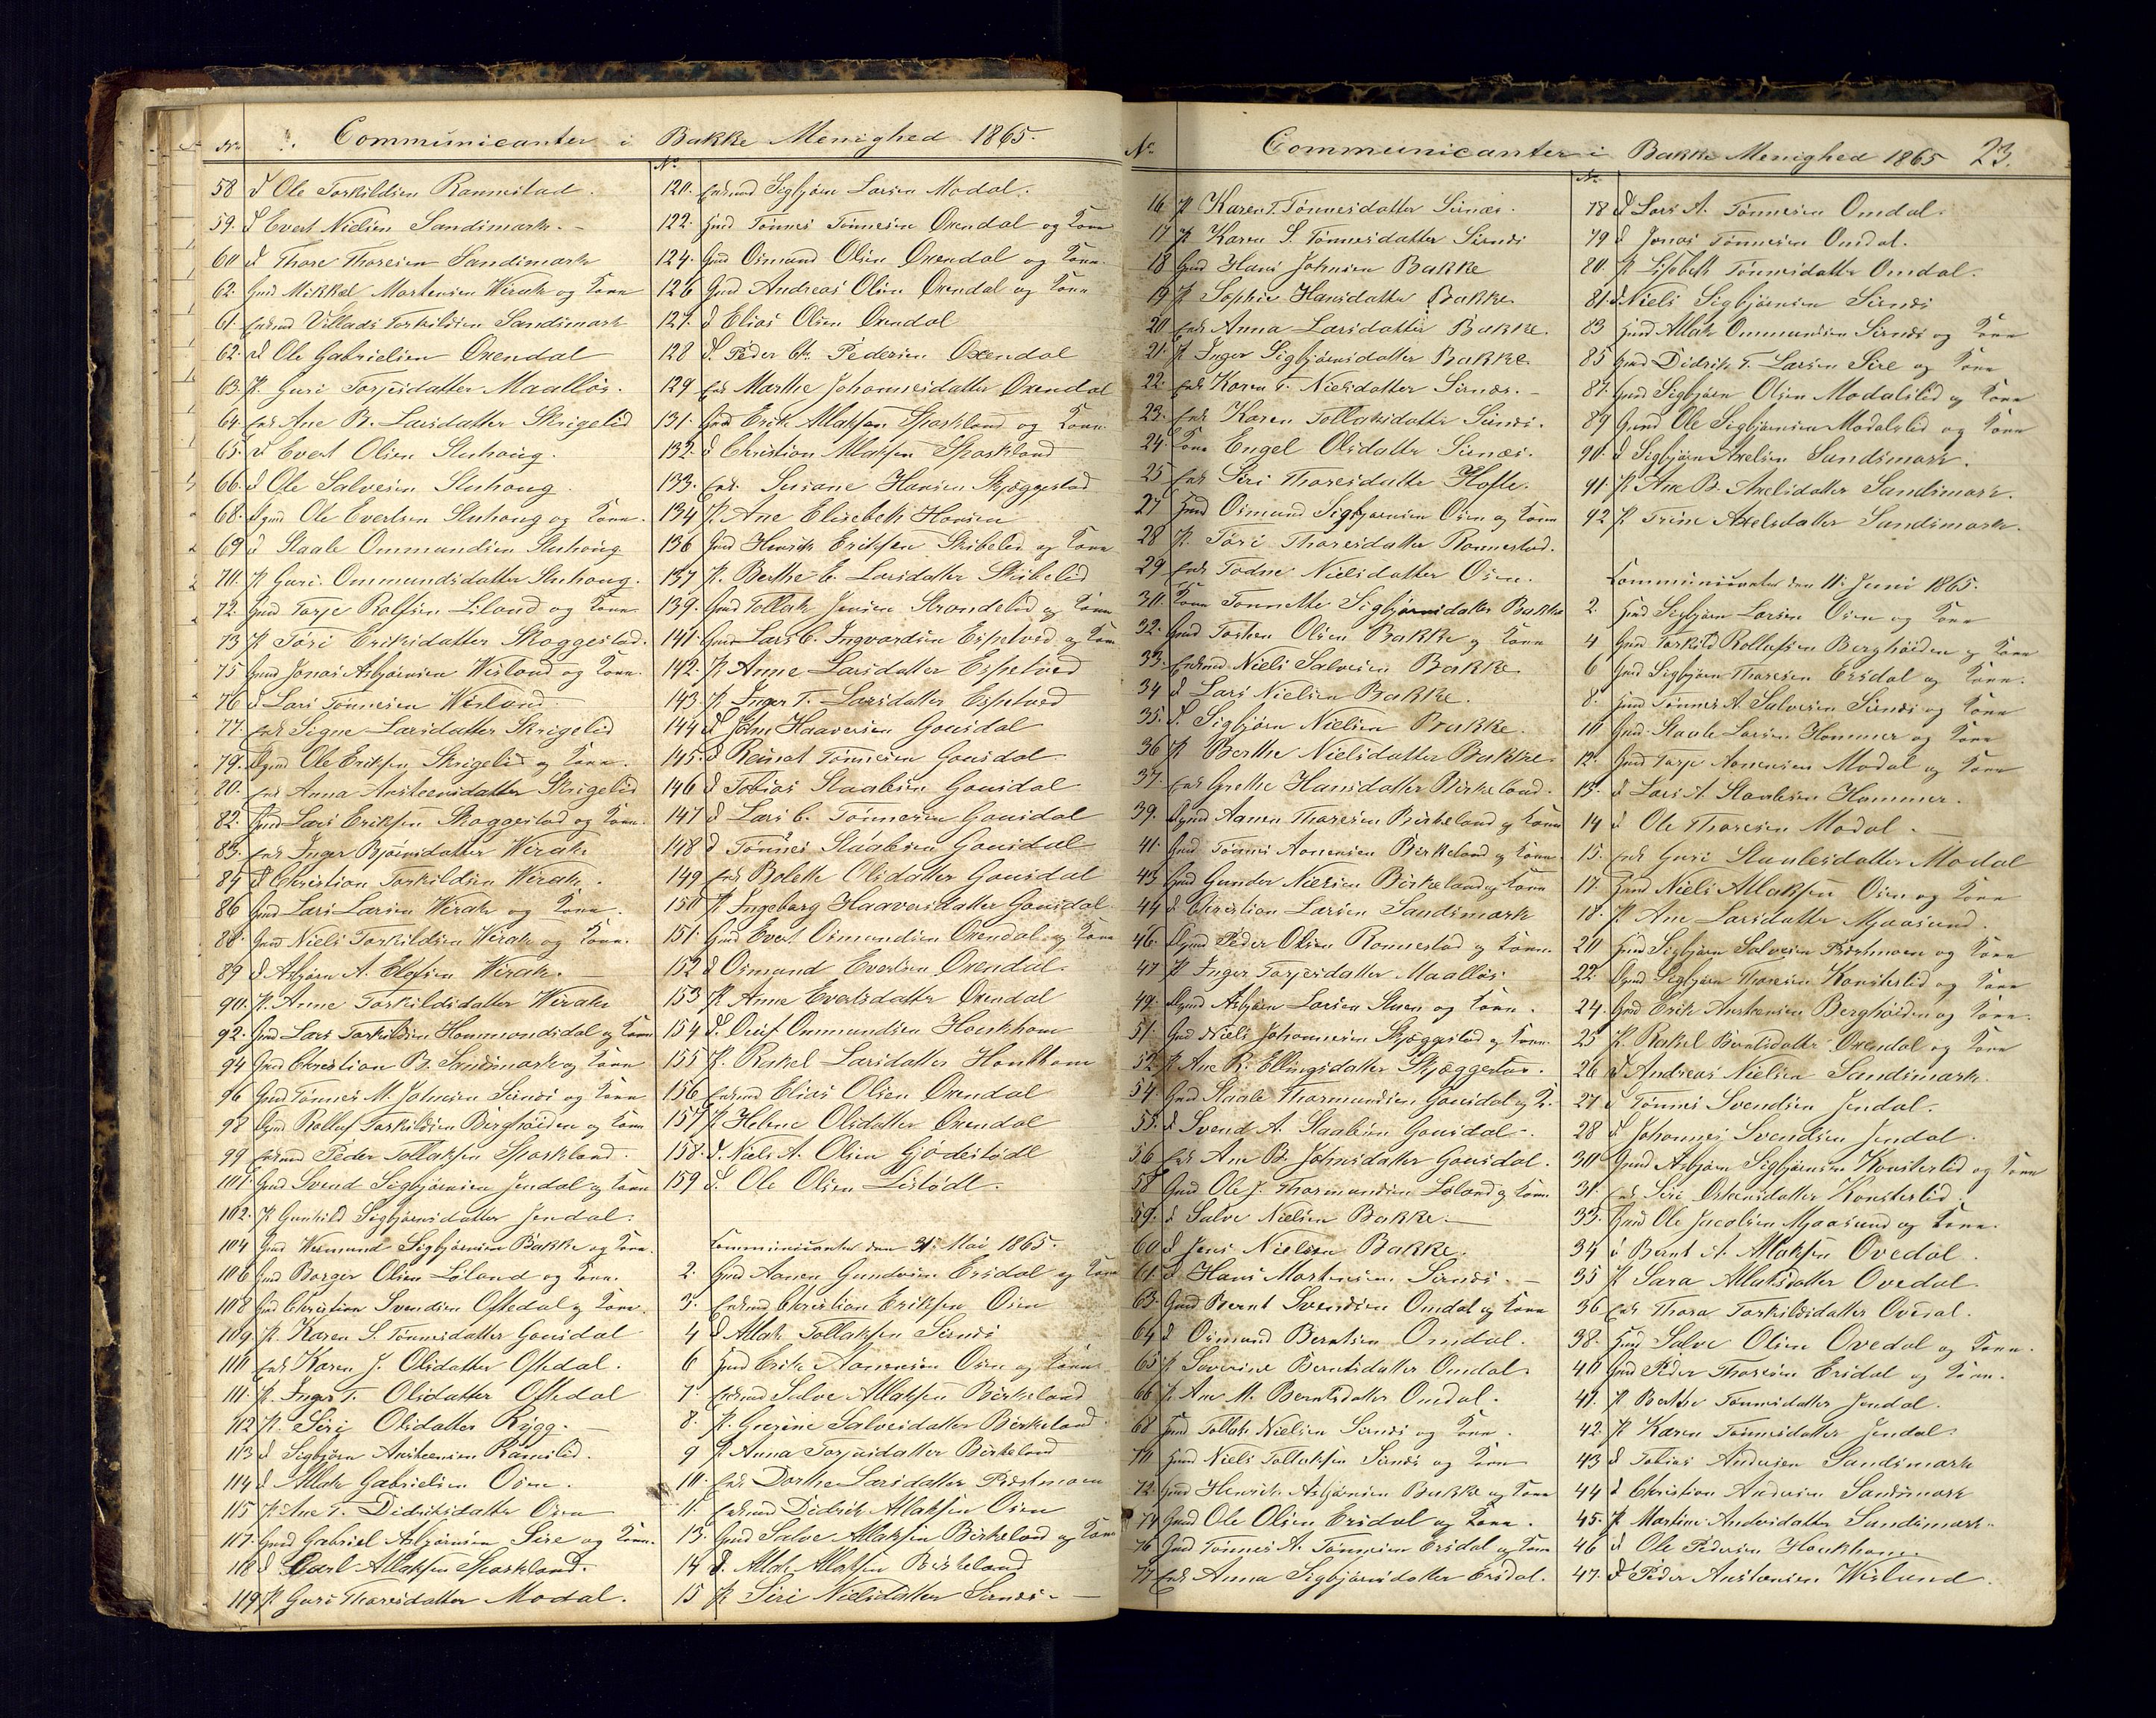 No. Communicanter i Bakke Menighed 1865.
58 d Ole Torkildsen Rannestad.
59. d Evert Nielsen Sandsmark.
60 d Thore Thoresen Sandsmark
62. Gmd Mikkel Mortensen Wirak og Kone
61. Enkemd Villads Torkildsen Sandsmark
62. d Ole Gabrielsen Oxendal
63. P. Guri Torjesdatter Maalløs.
64. Enke Ane B. Larsdatter Skrigelid
65. d Evert Olsen Sluhoug.
66. d Ole Salvesen Sluhoug
68. Gmd Ole Evertsen Sluhoug og Kone.
69 d Staale Ommundsen Sluhoug
70. P Guri Ommundsdatter Sluhoug.
72. Gmd Torje Rolfsen Liland og Kone
73 P Tøri Eriksdatter Skaggestad.
75 Gmd Jonas Asbjørnsen Wisland og Kone.
76 d Lars Tønnesen Wisland
77. Enke Signe Larsdatter Skrigelid
79. Gmd Ole Eriksen Skrigelid og Kone.
80. Enke Anna Ansteensdatter Skrigelid
82. Gmd Lars Eriksen Skaggestad og Kone.
83. Enke Inger Bjørnsdatter Wirak
84 d Christian Torkildsen Wirak.
86 Gmd Lars Larsen Wirak og Kone.
88. Gmd Niels Torkildsen Wirak og Kone.
89 d Asbjørn A. Elefsen Wirak.
90. P. Anne Torkildsdatter Wirak
92. Gmd Lars Torkildsen Hommondsdal og Kone
94 Gmd Christian B. Sandsmark og Kone
96 Gmd Tønnes M. Johnsen Sirnæs og Kone
98 Gmd Rolluf Torkildsen Berghøiden og Kone
99 Enkemd Peder Tollaksen Sparkland.
101. Gmd Svend Sigbjørnsen Jendal og Kone
102. P Gunhild Sigbjørnsdatter Jendal.
104 Gmd Wermund Sigbjørnsen Bakke og Kone.
106 Gmd Børger Olsen Løland og Kone.
108 Gmd Christian Svendsen Oftedal og Kone.
109. P. Karen S. Tønnesdatter Gousdal
110 Enke Karen J. Olsdatter Oftedal.
111. P. Inger T. Olsdatter Oftedal
112 P. Siri Olsdatter Rygg.
113 d Sigbjørn Ansteensen Ramslid.
114 d Atlak Gabrielsen Osen.
115 P Ane T. Didriksdatter Osen
117. Gmd Gabriel Asbjørnsen Sire og Kone.
118 d Carl Atlaksen Sparkland.
119 P Guri Thoresdatter Modal.
No.
120. Enkemd Sigbjørn Larsen Modal.
122. Gmd Tønnes Tønnesen Oxendal og Kone
124. Gmd Osmund Olsen Oxendal og Kone.
126 Gmd Andreas Olsen Oxendal og Kone
127. d Elias Olsen Oxendal
128 d. Peder Chr. Pedersen Oxendal
129 Enke Marthe Johannesdatter Oxendal
131. Gmd Erik Atlaksen Sparkland og Kone.
132. d Christian Atlaksen Sparkland
133. Enke. Susane Hansen Skjæggestad
134 P. Ane Elisebeth Hansen
136 Gmd Henrik Eriksen Skibelid og Kone
137 P. Berthe E. Larsdatter Skibelid
139. Gmd Tollak Jensen Strandelid og Kone
141. Gmd Lars C. Ingvardsen Espetved og Kone
142. P Anne Larsdatter Espetved
143. P Inger T. Larsdatter Espetved
144 d John Haaversen Gousdal
145. d Reinert Tønnesen Gousdal
146 d Tobias Staalesen Gousdal
147 d Lars C. Tønnesen Gousdal
148 d Tønnes Staalesen Gousdal
149 Enke Bolette Olsdatter Gousdal
150 P Ingeborg Haaversdatter Gousdal
151. Gmd Evert Osmundsen Oxendal og Kone
152 d Osmund Evertsen Oxendal
153 P Anne Evertsdatter Oxendal
154 d. Ommundsen Houkhom
155 P. Rakel Larsdatter Houkhom
156 Enkemd Elias Olsen Oxendal
157 P Helene Olsdatter Oxendal
158. d. Niels A. Olsen Gjødestødl
159 d. Ole Olsen Listødl.
Communicanter den 31. Mai 1865.
2. Gmd Aanen Gundersen Ersdal og Kone
3. Enkemd Christian Eriksen Osen
4 d Atlak Tollaksen Sirnæs
6 Gmd Erik Aanensen Osen og Kone
7. Enkemd Salve Atlaksen Birkeland
8. P. Gurine Salvesdatter Birkeland
9 P Anna Torjusdatter Birkeland
10. Enke Dorthe Larsdatter Præstmoen
11. Enkemd Didrik Atlaksen Osen
13. Gmd Salve Atlaksen Birkeland og Kone
14 d. Atlak Atlaksen Birkeland
15 P Siri Nielsdatter Sirnæs.
No. Communicanter i Bakke Menighed 1865 23.
16 P Karen T. Tønnesdatter Sirnæs.
17 P Karen S. Tønnesdatter Sirnæs
18 Gmd Hans Johnsen Bakke
19 P Sophie Hansdatter Bakke
20 Enke Anna Larsdatter Bakke.
21. P Inger Sigbjørnsdatter Bakke
22. Enke Karen T. Nielsdatter Sirnæs.
23. Enke Karen Tollaksdatter Sirnæs.
24. Kone Engel Olsdatter Sirnæs.
25 Enke Siri Thoresdatter Hofte.
27 Gmd Osmund Sigbjørnsen Osen og Kone
28 P. Tøri Thoresdatter Rannestad.
29 Enke Todne Nielsdatter Osen.
30. Kone Tonnette Sigbjørnsdatter Bakke
32. Gmd Torsten Olsen Bakke og Kone
33. Enkemd Niels Salvesen Bakke
34 d Lars Nielsen Bakke.
35. d. Sigbjørn Nielsen Bakke.
36 P Berthe Nielsdatter Bakke.
37. Enke Grethe Hansdatter Birkeland.
39. Gmd Aanen Thoresen Birkeland og Kone
41. Gmd Tønnes Aanensen Birkeland og Kone
43 Gmd Gunder Nielsen Birkeland og Kone
44 d Christian Larsen Sandsmark
46. Gmd Peder Olsen Rannestad og Kone.
47 P Inger Torjesdatter Maalløs
49. Gmd Asbjørn Larsen Stuen og Kone.
51. Gmd Niels Johannesen Skjæggestad og Kone.
52 P Ane R. Ellingsdatter Skjæggestad.
54. Gmd Staale Thormundsen Gousdal og K.
55. d Svend A. Staalesen Gousdal.
56 Enke Ane B. Johnsdatter Gousdal.
58 Gmd Ole J. Thormundsen Løland og Kone.
59. d Salve Nielsen Bakke.
60 d Jens Nielsen Bakke.
61. d Hans Mortensen Sirnæs.
63. Gmd Bernt Svendsen Omdal og Kone
64 d Osmund Berntsen Omdal.
65 P Severine Berntsdatter Omdal
66 P. Ane M. Berntsdatter Omdal.
68 Gmd Tollak Nielsen Sirnæs og Kone.
70 Gmd Niels Tollaksen Sirnæs og Kone
72. Gmd Henrik Asbjørnsen Bakke og Kone
74 Gmd Ole Olsen Ersdal og Kone.
76 Gmd Tønnes A. Tønnesen Ersdal og Kone
77 Enke Anna Sigbjørnsdatter Ersdal.
No.
78 d Lars A. Tønnesen Omdal.
79 d Jonas Tønnesen Omdal.
80. P Lisebeth Tønnesdatter Omdal.
81. d Niels Sigbjørnsen Sirnæs
83 Gmd Atlak Ommundsen Sirnæs og Kone
85 Gmd Didrik T. Larsen Sire og Kone
87. Gmd Sigbjørn Olsen Modalslid og Kone
89 Gmd Ole Sigbjørnsen Modalslid og Kone
90. d Sigbjørn Axelsen Sandsmark.
91. P Ane B. Axelsdatter Sandsmark.
92 P Trine Axelsdatter Sandsmark.
Communicanter den 11. Juni 1865.
2. Gmd Sigbjørn Larsen Osen og Kone
4 Gmd Torkild Rollufsen Berghøiden og Kone
6 Gmd Sigbjørn Thoresen Ersdal og Kone.
8. Gmd Tønnes A. Salvesen Sirnæs og Kone
10 Gmd Staale Larsen Hammer og Kone
12. Gmd Torje Aanensen Modal og Kone
13. d Lars A. Staalesen Hammer.
14 d Ole Thoresen Modal.
15. Enke Guri Staalesdatter Modal
17. Gmd Niels Atlaksen Osen og Kone
18. P. Ane Larsdatter Mjaasund.
20 Gmd Sigbjørn Salvesen Præstmoen og Kone
22 Gmd Sigbjørn Thoresen Konsterlid og Kone
24. Gmd Erik Anstensen Berghøiden og Kone.
25 P. Rakel Berntsdatter Oxendal og Kone
26 d Andreas Nielsen Sandsmark.
27 d Tønnes Svendsen Jendal.
28 d Johannes Svendsen Jendal.
30 Gmd Asbjørn Sigbjørnsen Konsterlid og Kone
31. Enke Siri Ostensdatter Konsterlid.
33. Gmd Ole Jacobsen Mjaasund og Kone.
34 d Bernt A. Atlaksen Ovedal.
35 P Sara Atlaksdatter Ovedal.
36 Enke Thora Torkildsdatter Ovedal.
38. Gmd Salve Olsen Ovedal og Kone.
40 Gmd Peder Thoresen Ersdal og Kone.
41. P Berthe Tønnesdatter Jendal.
42. P Karen Tønnesdatter Jendal.
43 d Tobias Andersen Sandsmark
44 d Christian Andersen Sandsmark
45. P Martine Andersdatter Sandsmark.
46 d Ole Pedersen Houkhom.
47. d Peder Anstensen Wislund.